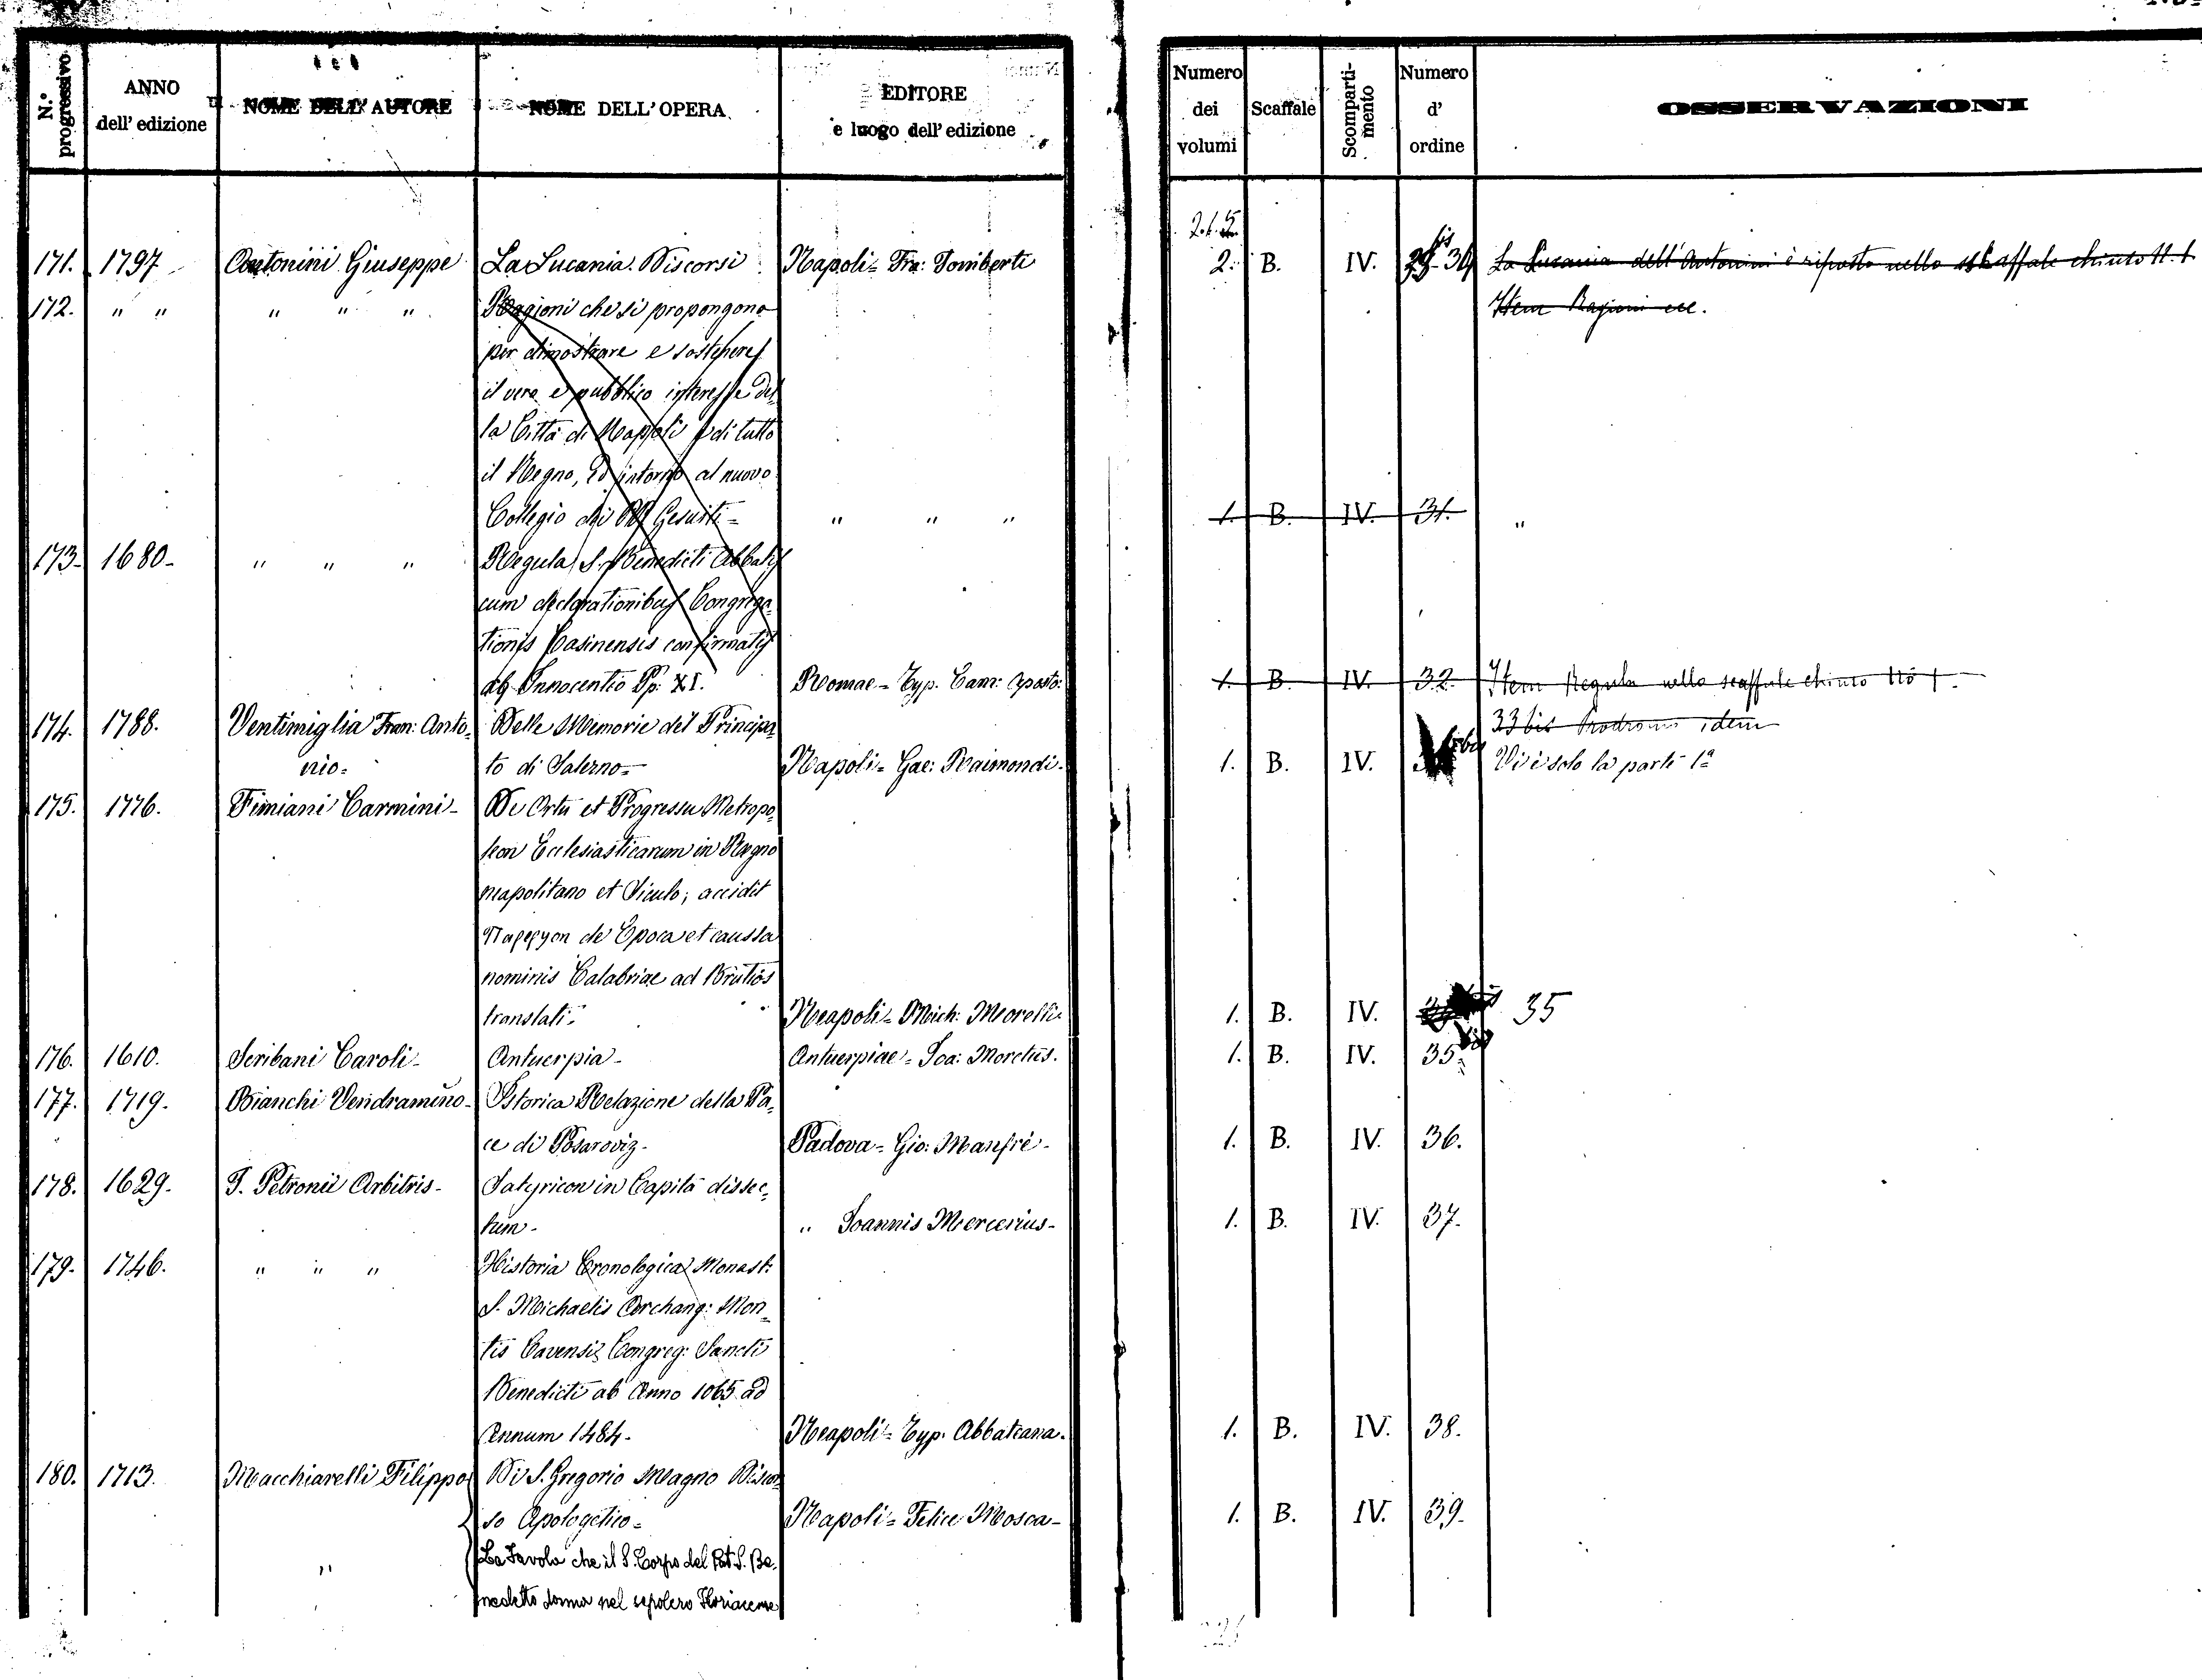 N.° progressivo
ANNO dell' edizione
NOME DELL' AUTORE
NOME DELL' OPERA
EDITORE e luogo dell' edizione
Numero dei volumi
Scaffale
Scomparti-mento
Numero d' ordine
OSSERVAZIONI
2.1.5
171. 1797 Antonini Giuseppe La Lucania. Discorsi Napoli = Fra: Tomberti 2. B. IV. 30 La Lucania dell' Antonini è riposto nello scaffale chiuso N. 1
172. " " " " " Ragioni che si propongono Item Ragioni ecc.
per dimostrare e sostenere
il vero e pubblico interesse del
la Città di Napoli e di tutto
il Regno, ed intorno al nuovo
Collegio dei PP. Gesuiti = " " " 1. B. IV. 31. "
173- 1680- " " " Regula S. Benedicti Abbatis
cum declarationibus Congrega
tionis Casinensis confirmatis
ab Innocentio Pp. XI. Romae = Typ. Cam: Aposto: 1. B. IV. 32. Item Regula nello scaffale chiuso No 1.
174. 1788. Ventimiglia Fran: Anto= Delle Memorie del Principa 33 bis Prodromi idem
nio= to di Salerno= Napoli = Gae: Raimondi. 1. B. IV. bis Vi è solo la parte 1a
175. 1776. Fimiani Carmini- De Ortu et Progressu Metropo
leon Ecclesiasticarum in Regno
neapolitano et Siculo; accidit
de Epoca et caussa
nominis Calabriae ad Brutios
translati. Neapoli = Mich: Morelli- 1. B. IV. 35
176. 1610. Scribani Caroli- Antuerpia- Antuerpiae = Ioa: Moretus. 1. B. IV. 35. bis
177. 1719. Bianchi Vendramino- Istorica Relazione della Pa=
ce di Posaroviz- Padova = Gio: Manfrè- 1. B. IV. 36.
178. 1629. T. Petronii Arbitris- Satyricon in Capita dissec=
tum- " Ioannis Mercerius- 1. B. IV. 37.
179. 1746. " " " Historia Cronologica Monast:
S. Michaelis Archang: Mon=
tis Cavensis Congreg: Sancti
Benedicti ab Anno 1065 ad
Annum 1484. Neapoli = Typ. Abbateana. 1. B. IV. 38.
180. 1713. Macchiarelli Filippo Di S. Gregorio Magno Discor
so Apologetico= Napoli = Felice Mosca- 1. B. IV. 39.
" La Favola che il S. Corpo del Pat. S. Be=
nedetto dorma nel sepolcro Floriacense